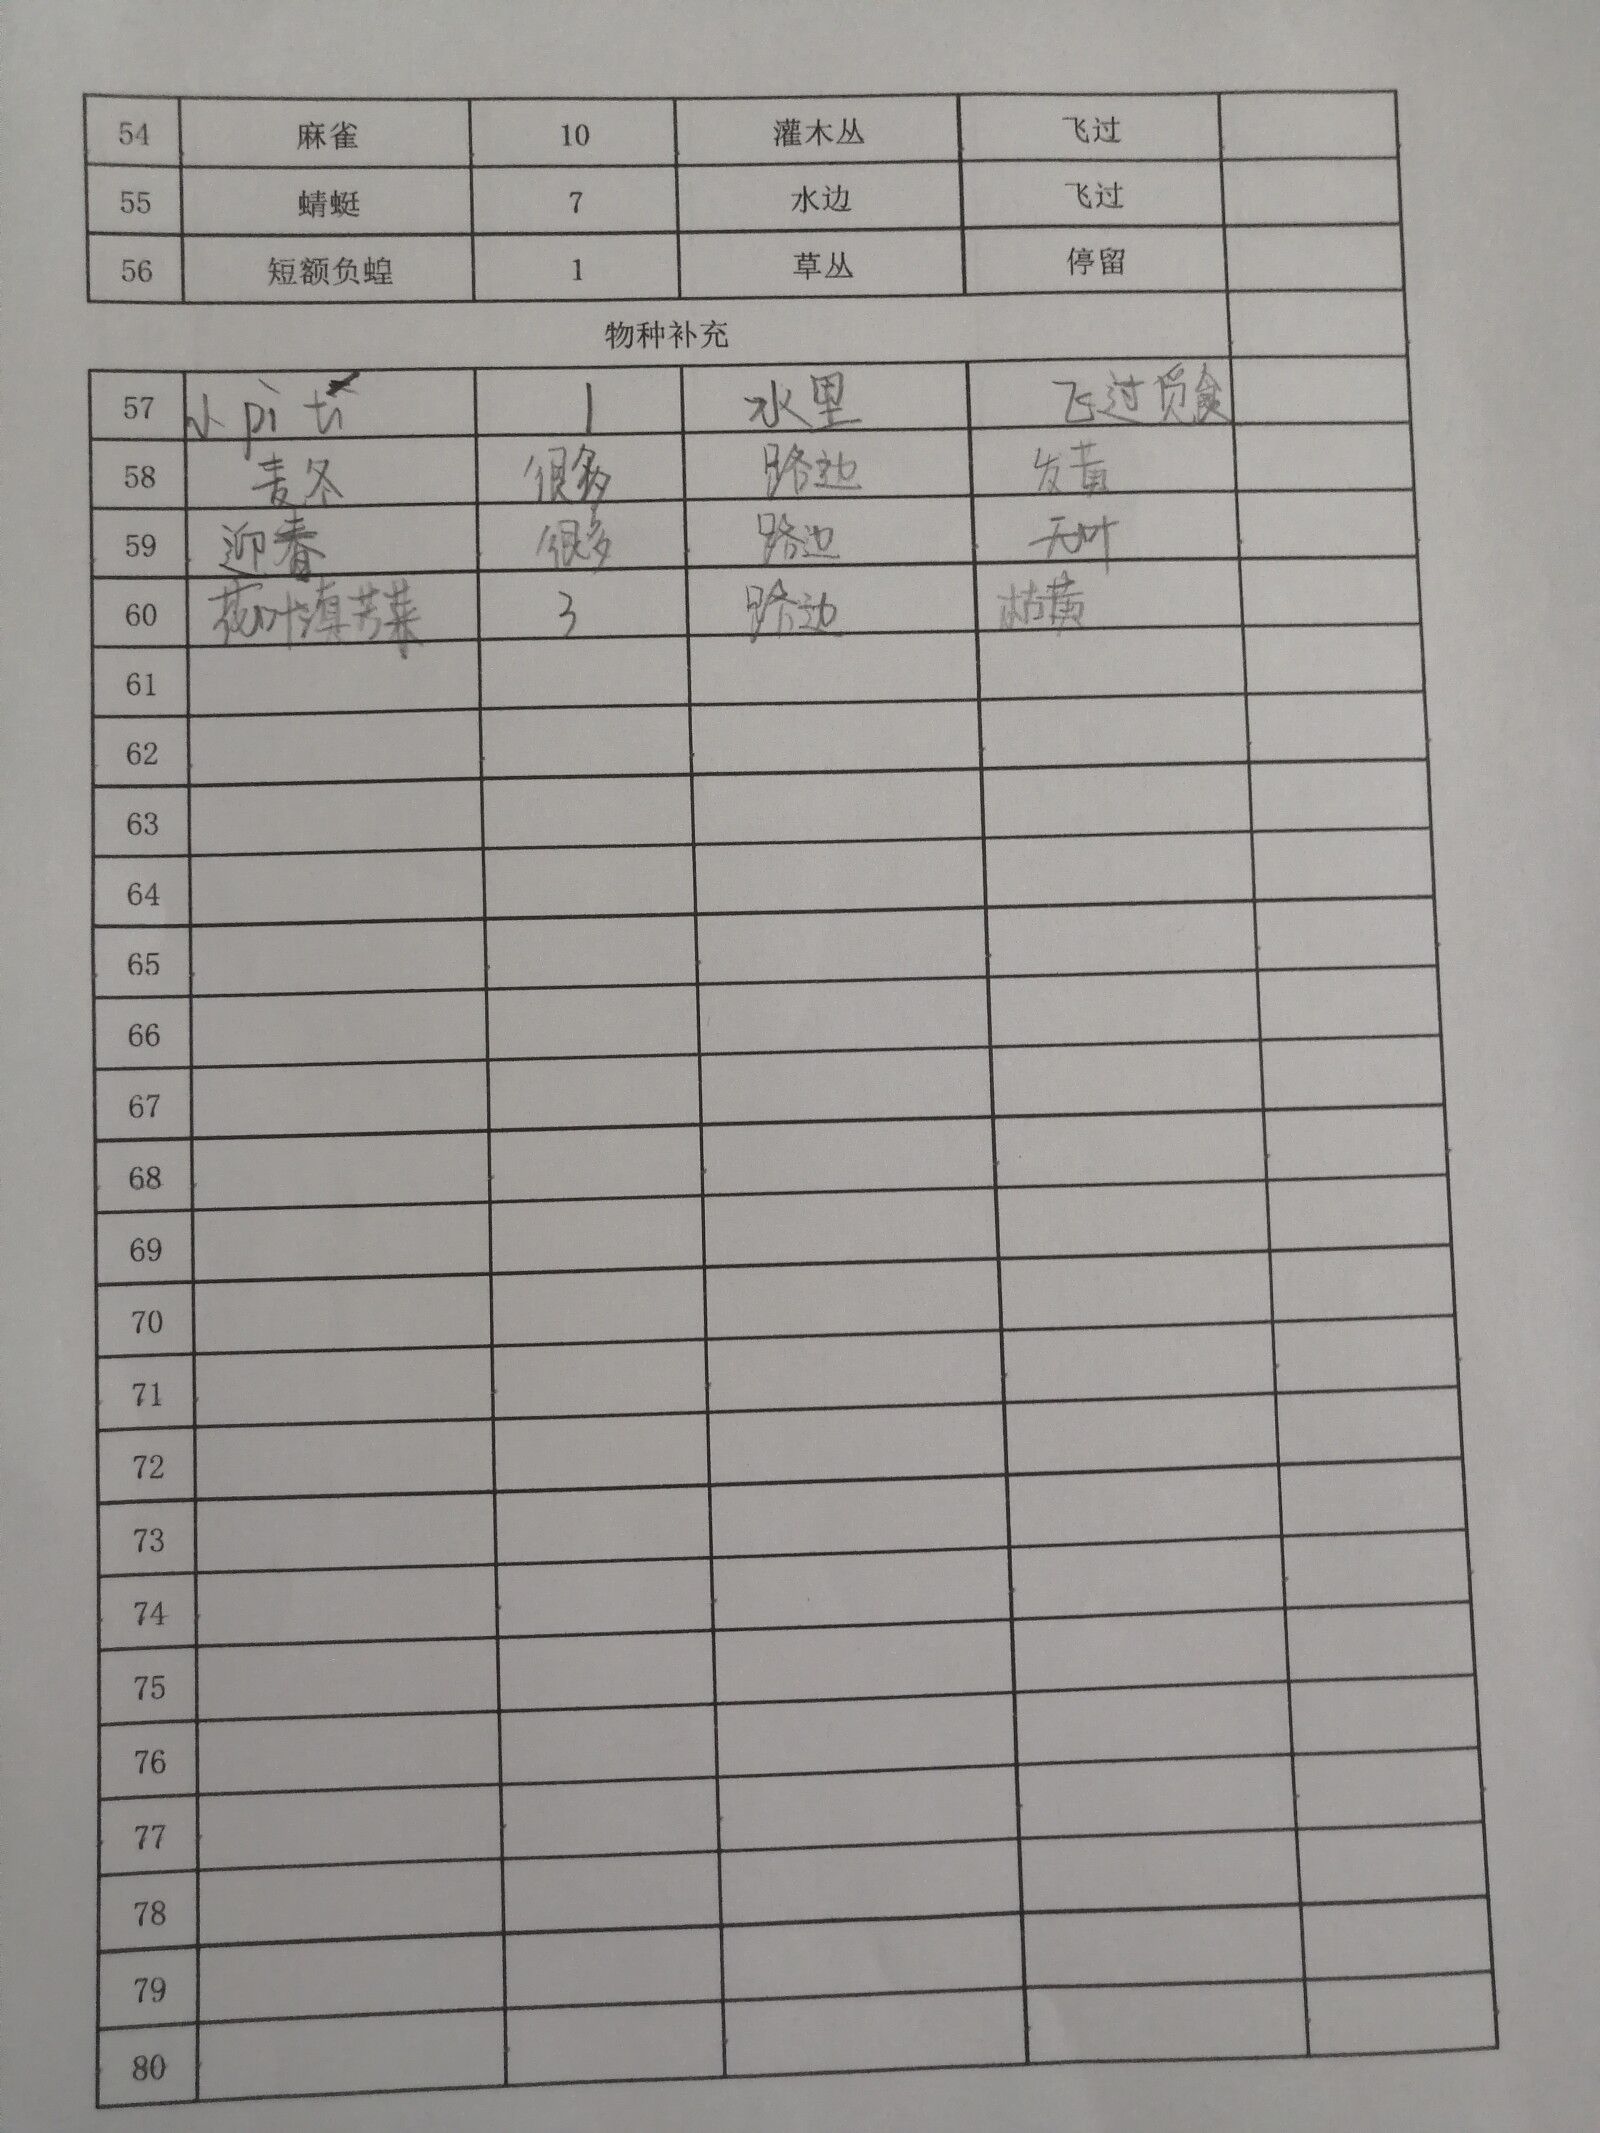 54 麻雀 10 灌木丛 飞过
55 蜻蜓 7 水边 飞过
56 短额负蝗 1 草丛 停留
物种补充
57 小pì tī 1 水里 飞过觅食
58 麦冬 很多 路边 发黄
59 迎春 很多 路边 无叶
60 花叶滇苦菜 3 路边 枯黄
61
62
63
64
65
66
67
68
69
70
71
72
73
74
75
76
77
78
79
80